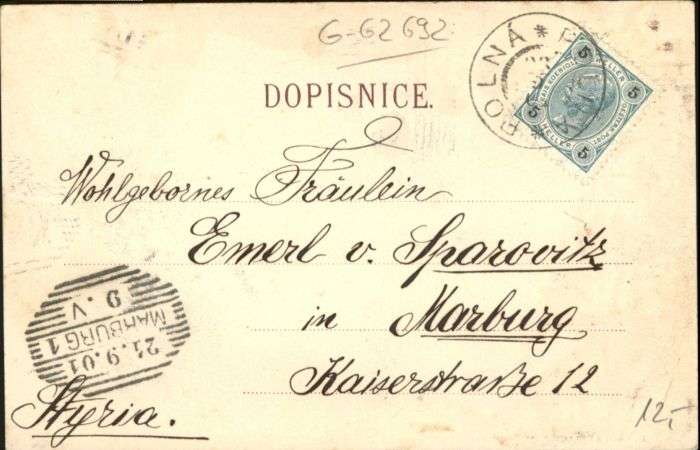 G-G2 692
DOPISNICE.
POLNÁ *
5 5 5 5
HELLER HELLER
Wohlgebornes Fräulein
Emerl v. Sparovitz
in Marburg
Kaiserstraße 12
MARBURG 1
21.9.01
9.V
Styria.
12,-